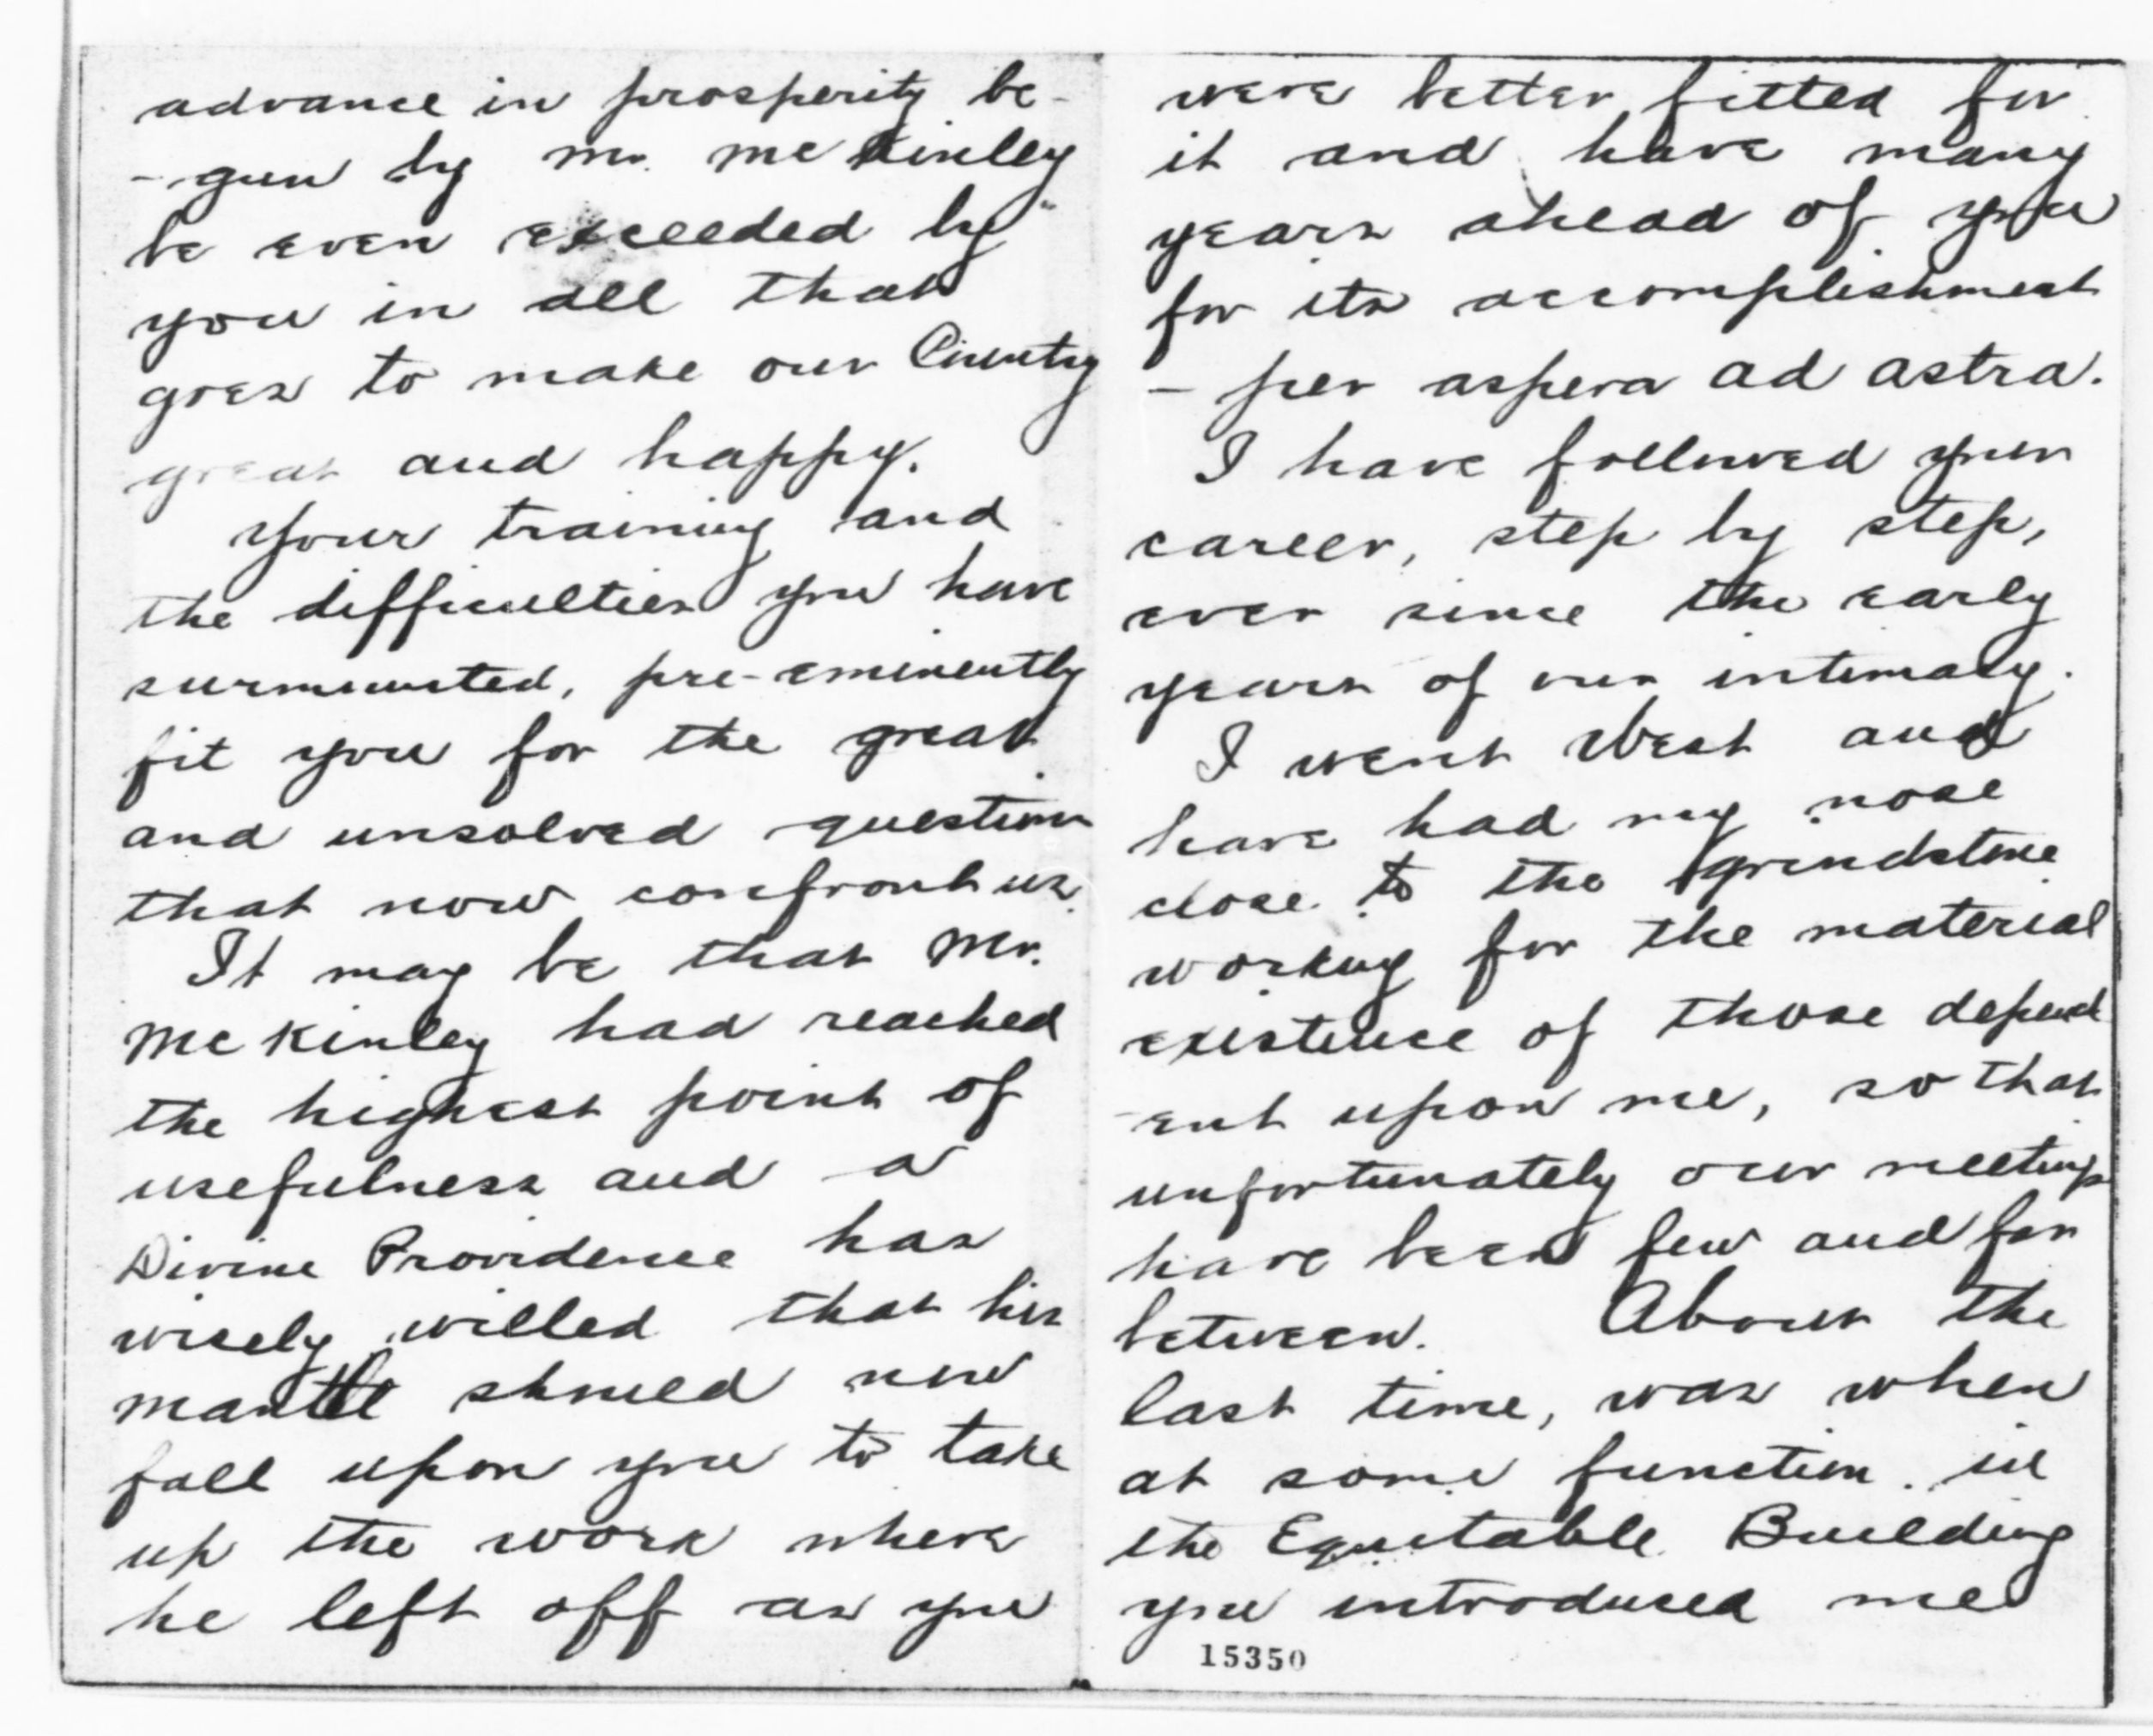 advance in prosperity be-
-gun by Mr. McKinley
be even exceeded by
you in all that
goes to make our Country
great and happy.
Your training and
the difficulties you have
surmounted, pre-eminently
fit you for the great
and unsolved questions
that now confront us.
It may be that Mr.
McKinley had reached
the highest point of
usefulness and a
Divine Providence has
wisely willed that his
mantle should now
fall upon you to take
up the work where
he left off as you
were better fitted for
it and have many
years ahead of you
for its accomplishment
- per aspera ad astra.
I have followed your
career, step by step,
ever since the early
years of our intimacy.
I went West and
have had my nose
close to the grindstone
working for the material
existence of those depend
-ent upon me, so that
unfortunately our meetings
have been few and far
between. About the
last time, was when
at some function in
the Equitable Building
you introduced me
15350